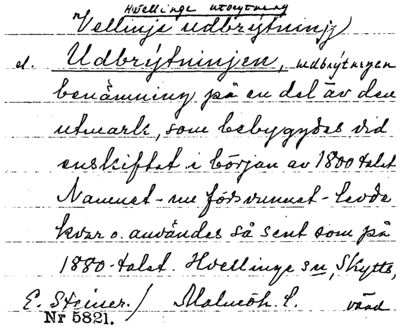 Hvellinge utbrytning
Vellinje udbrÿtninj)
el. Udbrÿtninjen, udbrytningen
benämning på en del av den
utmark, som bebyggdes vid
enskiftet i början av 1800 talet
Namnet - nu försvunnet - levde
kvar o. användes så sent som på
1880-talet. Hvellinge sn, Skytts,
E. Steiner./ Malmöh. l. värd
Nr 5821.